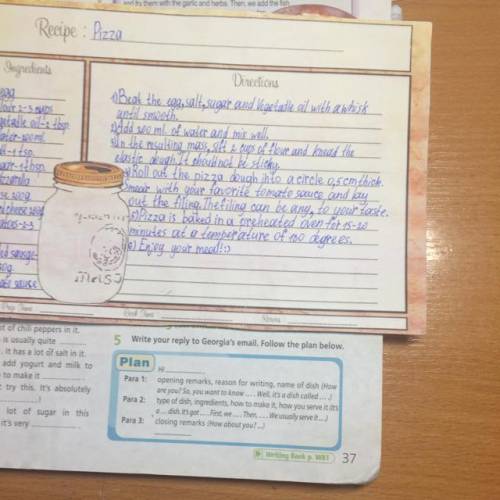 and fry them with the garlic and herbs. Then, we add the fish
Recipe : Pizza
Ingredients
egg
flour 2-3 cups
vegetable oil-2 tbsp
water-200 ml.
salt-1 tsp.
mozzarella
tomato sauce
Directions
1) Beat the egg, salt, sugar and vegetable oil with a whisk
until smooth.
2) Add 200 ml. of water and mix well.
3) In the resulting mass, sift 2 cups of flour and knead the
elastic dough. It should not be sticky.
4) Roll out the pizza dough into a circle 0,5 cm thick.
smear with your favorite tomato sauce and lay
out the filing. The filing can be any, to your taste.
5) Pizza is baked in a preheated oven for 15-20
minutes at a temperature of 180 degrees.
6) Enjoy your meal! :)
Prep Time
Cook Time
Serves
lot of chili peppers in it.
is usually quite
It has a lot of salt in it.
add yogurt and milk to
to make it
try this. It's absolutely
lot of sugar in this
it's very
5 Write your reply to Georgia's email. Follow the plan below.
Plan
Hi
Para 1: opening remarks, reason for writing, name of dish (How
are you? So, you want to know . . . . Well, it's a dish called . . .)
Para 2: type of dish, ingredients, how to make it, how you serve it (It's
a . . . dish. It's got . . . . First, we . . . . Then, . . . . We usually serve it . . .)
Para 3: closing remarks (How about you? ...)
Writing Bank p. WB1
37